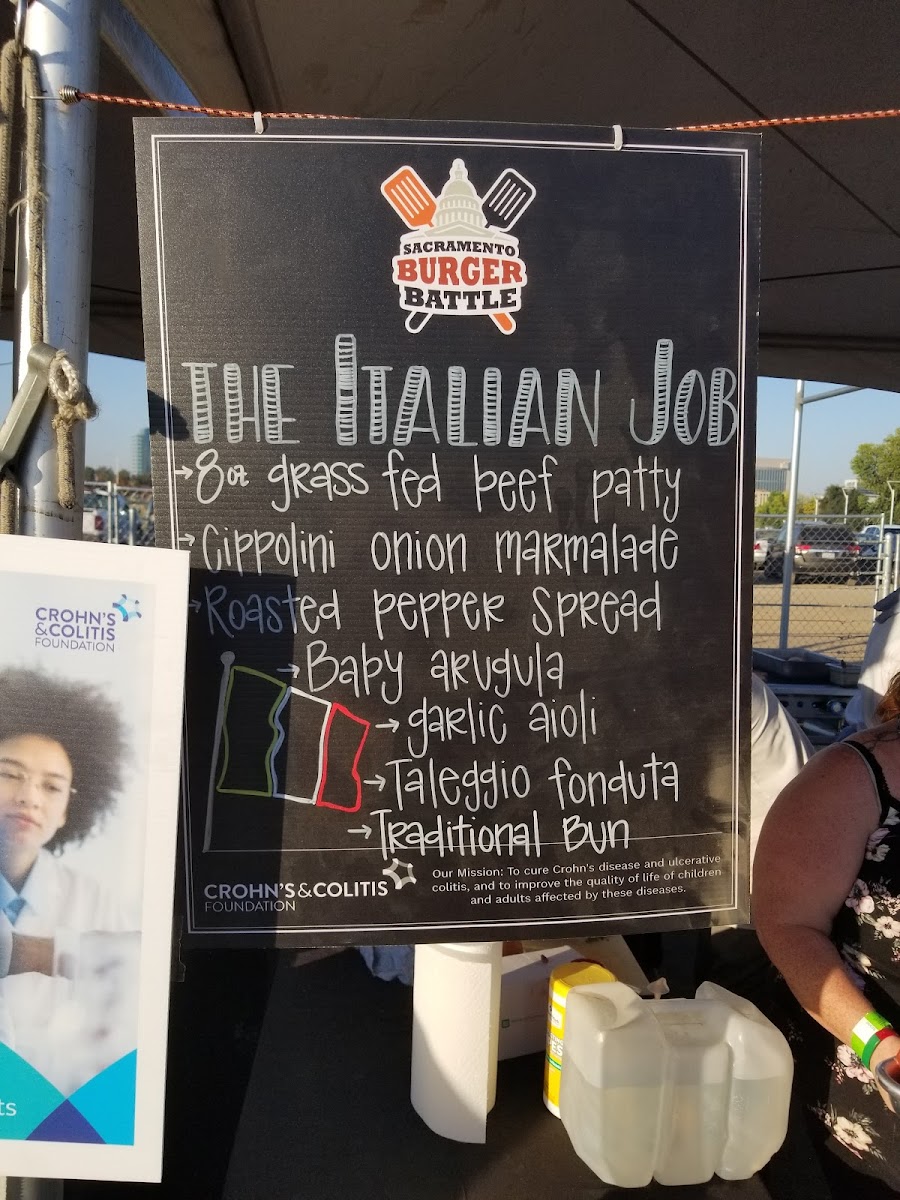 SACRAMENTO
BURGER
BATTLE
THE ITALIAN JOB
→ 8oz grass fed beef patty
→ Cippolini onion marmalade
→ Roasted pepper spread
→ Baby arugula
→ garlic aioli
→ Taleggio fonduta
→ Traditional Bun
CROHN'S & COLITIS
FOUNDATION
Our Mission: To cure Crohn's disease and ulcerative
colitis, and to improve the quality of life of children
and adults affected by these diseases.
CROHN'S
& COLITIS
FOUNDATION
ts